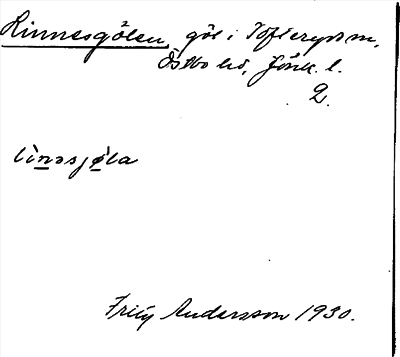 Linnesgölen, göl i Tofteryds sn,
Östbo hd, Jönk. l.
2.
lìnəsjø̀la
Frity Andersson 1930.